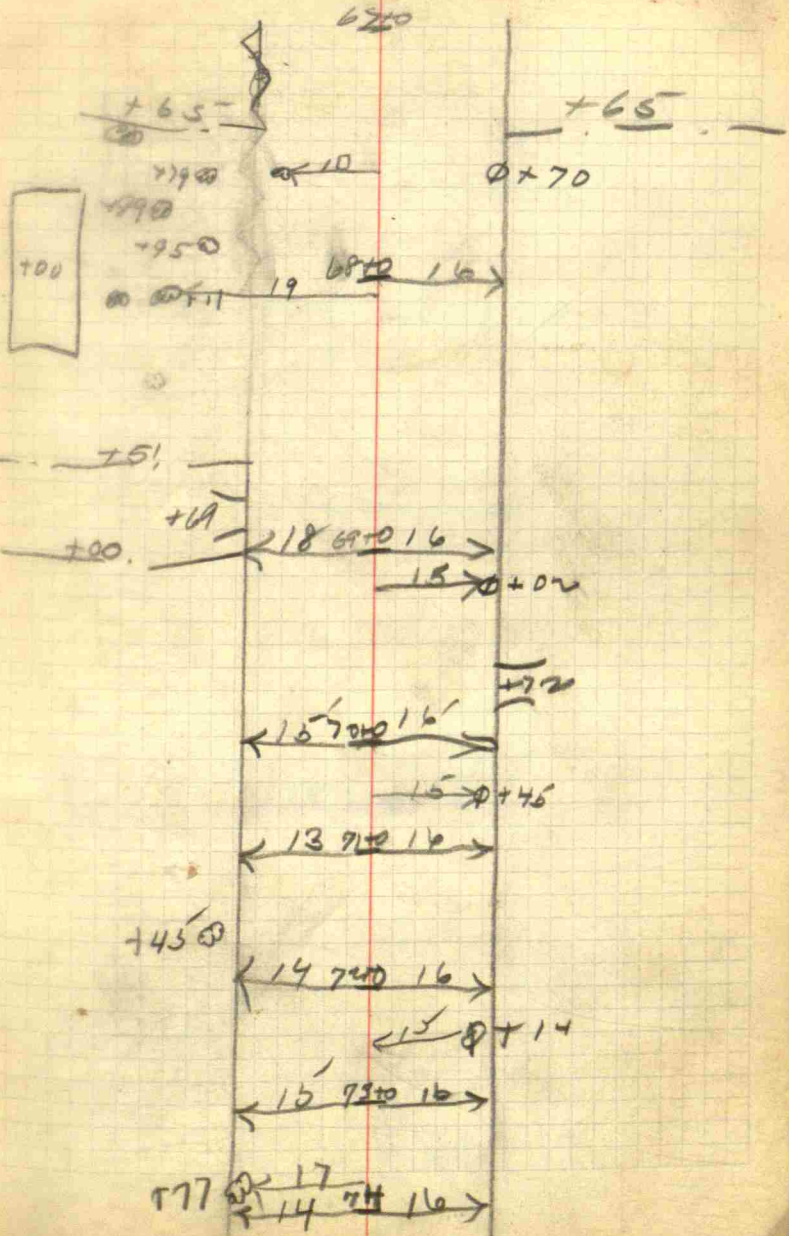 67+0
+65 +65
+79 10 +70
+89
+00 +95
68+0 16
+11 19
+51
+69
+00 18 69+0 16
15 +02
+72
15 70+0 16
15 +45
13 71+0 16
+45
14 72+0 16
15 +14
15 73+0 16
+77 17
14 74 16